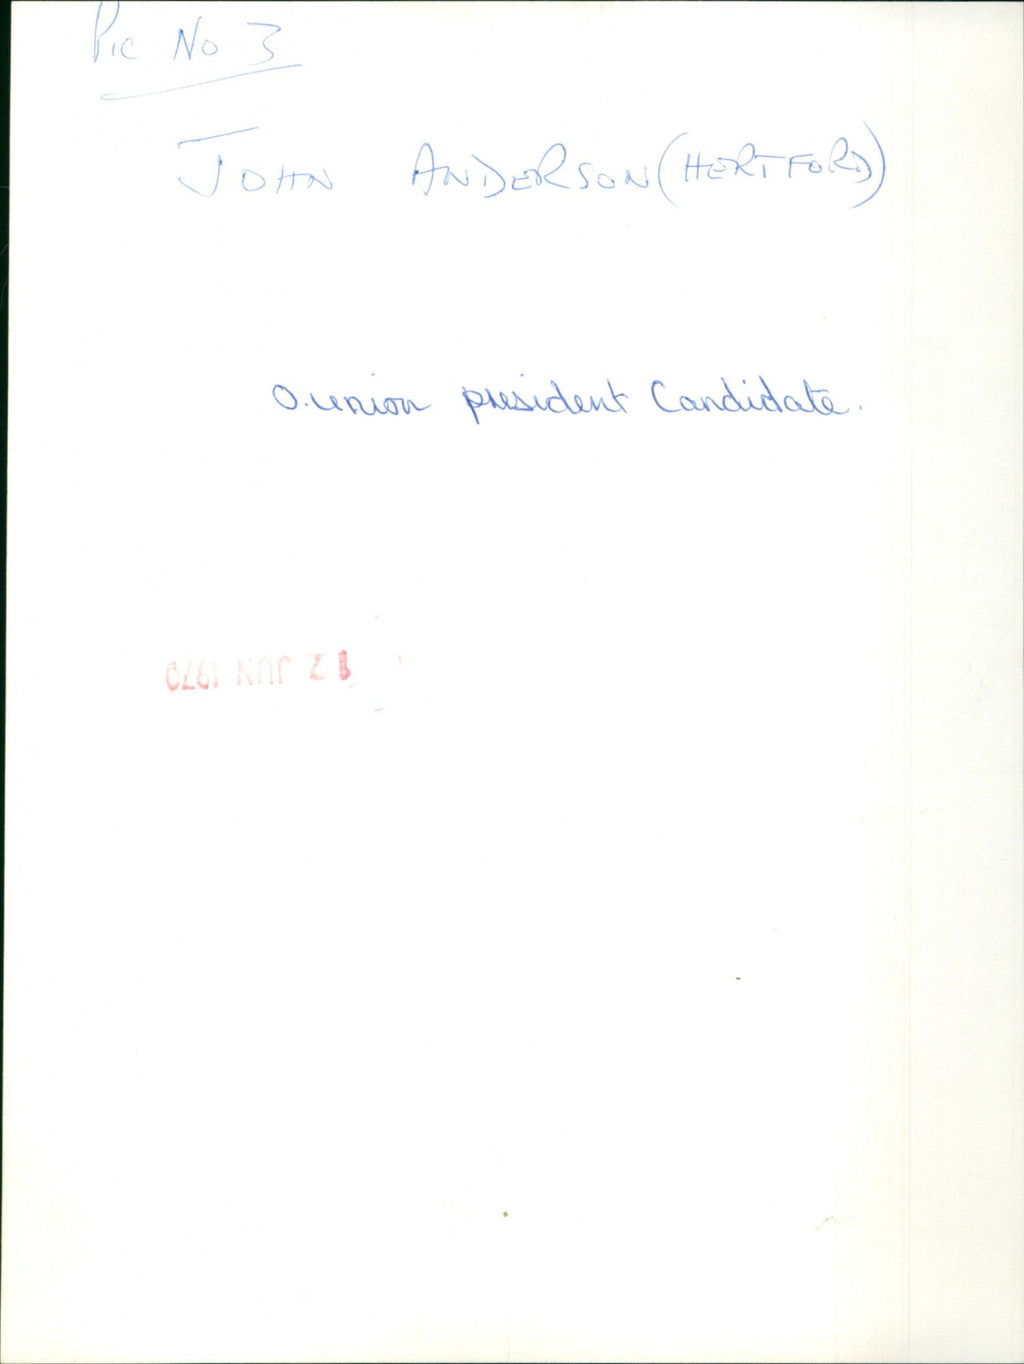 Pic No 3
JOHN ANDERSON (HERTFORD)
O.union president Candidate.
12 JUN 1970